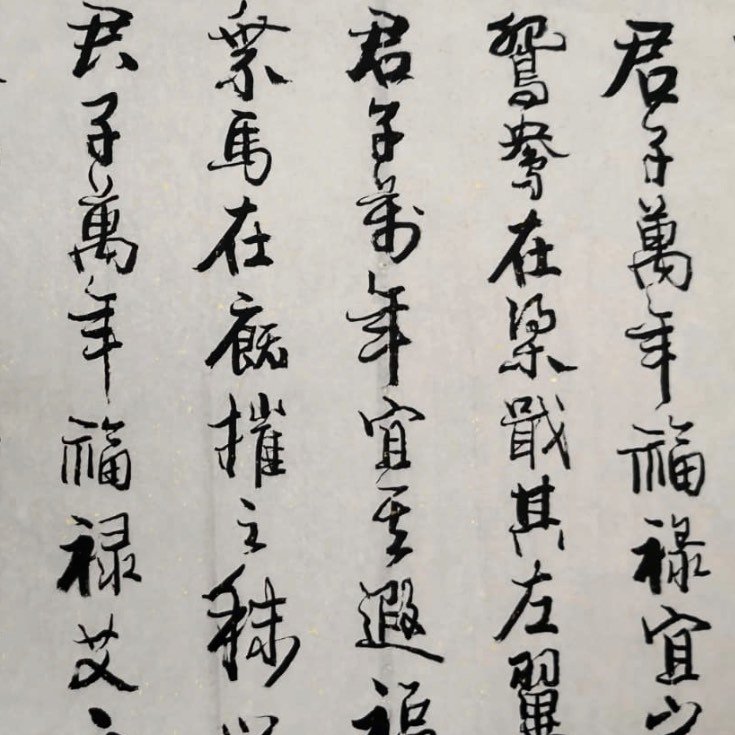 君子萬年福禄宜
鴛鴦在梁戢其左翼
君子萬年宜其遐福
乘馬在廐摧之秣
君子萬年福禄艾